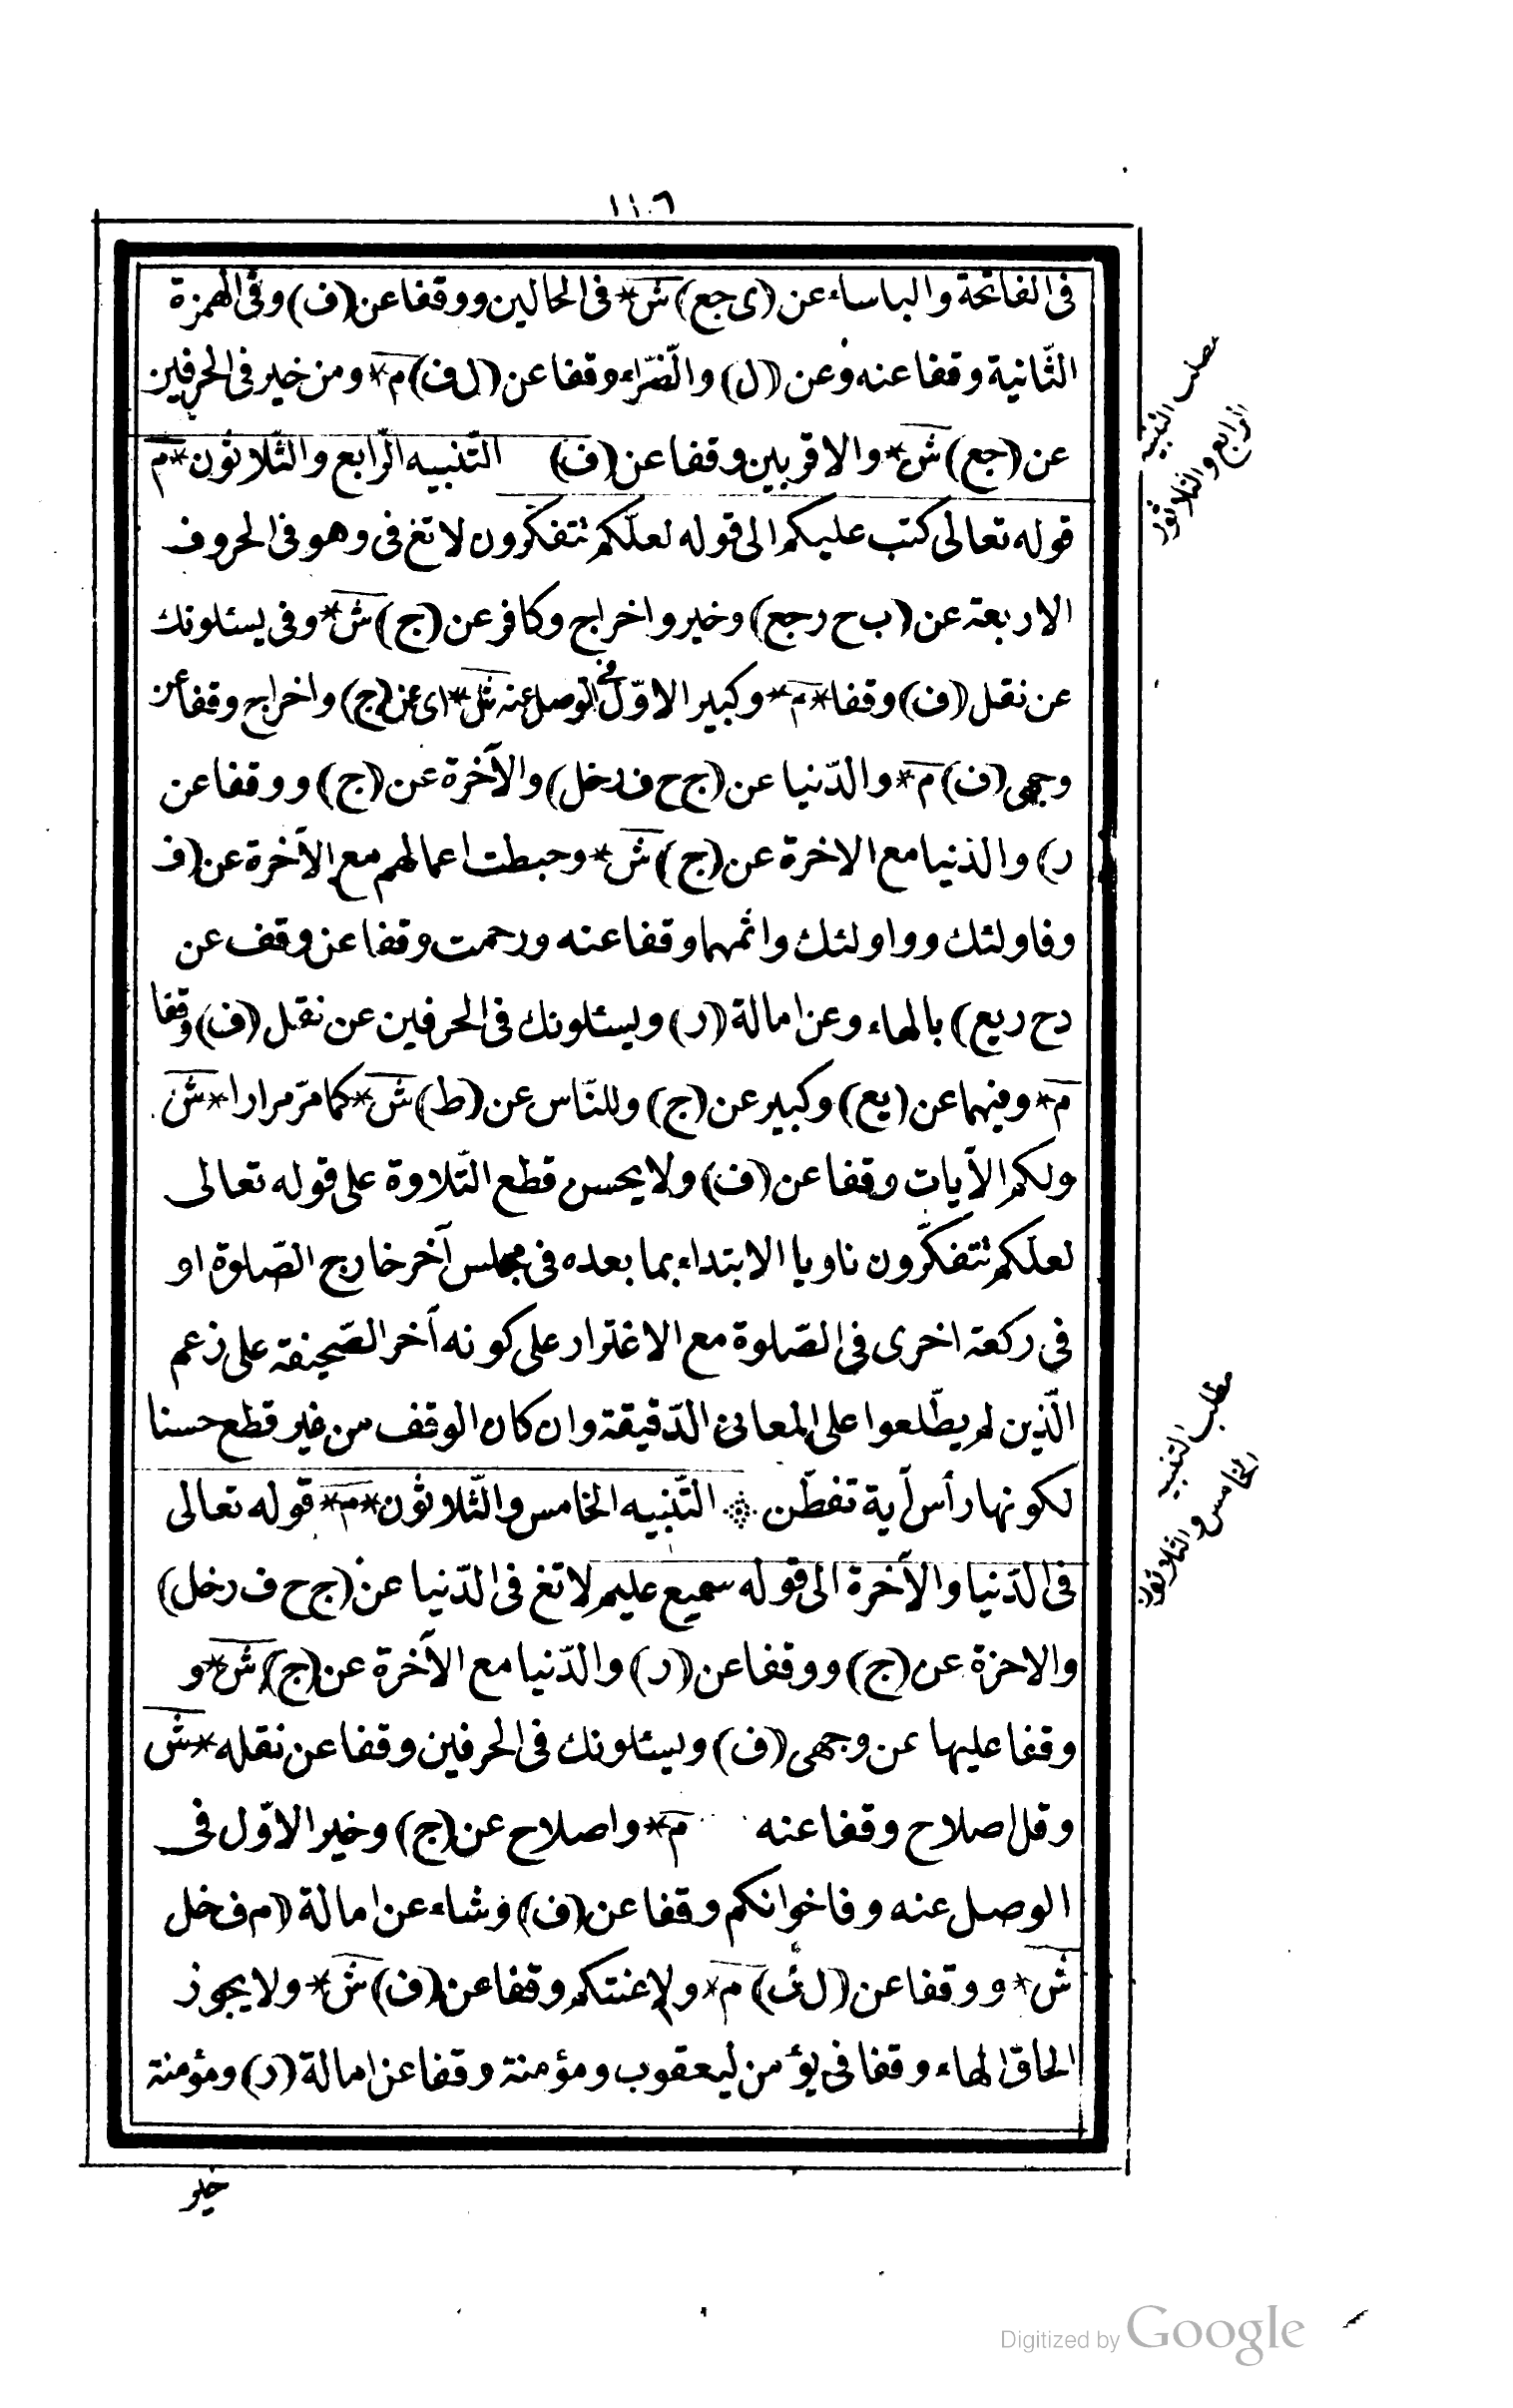 ١١٦
فى الفاتحة والباساء عن (ى جع) ش* فى الحالين ووقفا عن (ف) وفى الهمزة
الثّانية وقفا عنه وعن (ل) والضّرّاء وقفا عن (ل ف) م* ومن خير فى الحرفين
عن (جع) ش* والاقربين وقفا عن (ف) التّنبيه الرّابع والثّلاثون* م
قوله تعالى كتب عليكم الى قوله لعلّكم تتفكّرون لا تغ فى وهو فى الحروف
الاربعة عن (ب ح ر جع) وخير واخراج وكافر عن (ج) ش* وفى يسئلونك
عن نقل (ف) وقفا* م* وكبير الاوّل فى الوصل عنه ش* اى عن (ج) واخراج وقفا عن
وجهى (ف) م* والدّنيا عن (ج ح ف ر خل) والآخرة عن (ج) ووقفا عن
ر) والدنيا مع الاخرة عن (ج) ش* وحبطت اعمالهم مع الآخرة عن (ف
وفاولئك وواولئك واثمهما وقفا عنه ورحمت وقفا عن وقف عن
دح ريع) بالهاء وعن امالة (ر) ويسئلونك فى الحرفين عن نقل (ف) وقفا
م* وفيهما عن (يع) وكبير عن (ج) وللنّاس عن (ط) ش* كما مرّ مرارا* ش
ولكم الآيات وقفا عن (ف) ولا يحسن قطع التّلاوة على قوله تعالى
لعلّكم تتفكّرون ناويا الابتداء بما بعده فى مجلس آخر خارج الصّلوة او
فى ركعة اخرى فى الصّلوة مع الاغترار على كونه آخر الصّحيفة على زعم
الّذين لم يطّلعوا على المعانى الدّقيقة وان كان الوقف من غير قطع حسنا
لكونها رأس آية تفطّن ۞ التّنبيه الخامس والثّلاثون* م* قوله تعالى
فى الدّنيا والآخرة الى قوله سميع عليم لا تغ فى الدّنيا عن (ج ح ف ر خل)
والاخرة عن (ج) ووقفا عن (ر) والدّنيا مع الآخرة عن (ج) ش* و
وقفا عليها عن وجهى (ف) ويسئلونك فى الحرفين وقفا عن نقله* ش
وقل اصلاح وقفا عنه م* واصلاح عن (ج) وخير الاوّل فى
الوصل عنه وفاخوانكم وقفا عن (ف) وشاء عن امالة (م ف خل
ش* ووقفا عن (ل ف) م* ولاعنتكم وقفا عن (ف) ش* ولا يجوز
الحاق الهاء وقفا فى يؤمن ليعقوب ومؤمنة وقفا عن امالة (ر) ومؤمنة
خير
مطلب التنبيه
الرابع والثلاثون
مطلب التنبيه
الخامس والثلاثون
Digitized by Google